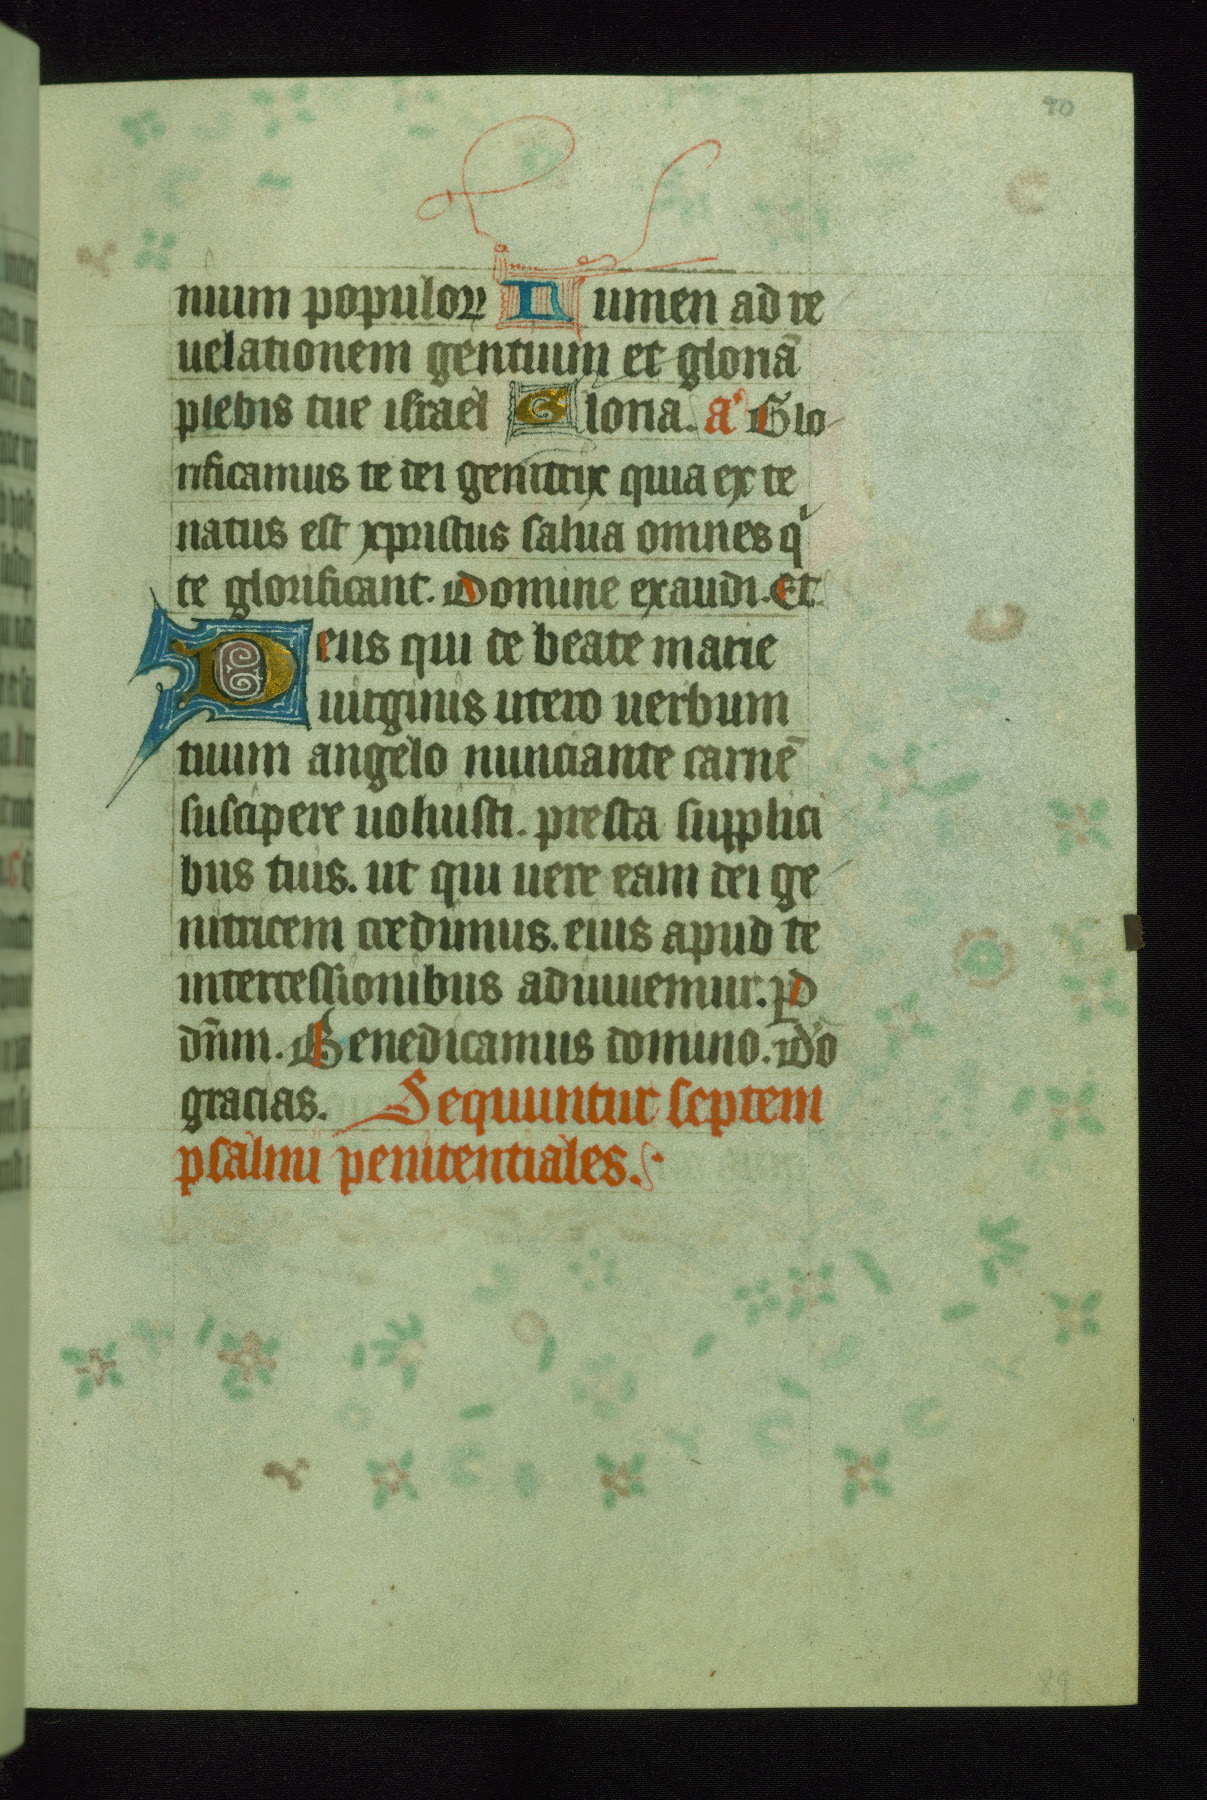 90
nium populoꝝ Lumen ad re
uelationem gentium et gloriā
plebis tue israel Gloria. a᷑ Glo
rificamus te dei genitrix quia ex te
natus est xpristus salua omnes qⁱ
te glorificant. Domine exaudi. Et
Deus qui de beate marie
uirginis utero uerbum
tuum angelo nunciante carnē
suscipere uoluisti. presta supplici
bus tuis. ut qui uere eam dei ge
nitricem credimus. eius apud te
intercessionibus adiuuemur. p d
dn̄m. Benedicamus domino. Dō
gracias. Sequuntur septem
psalmi penitentiales.
89